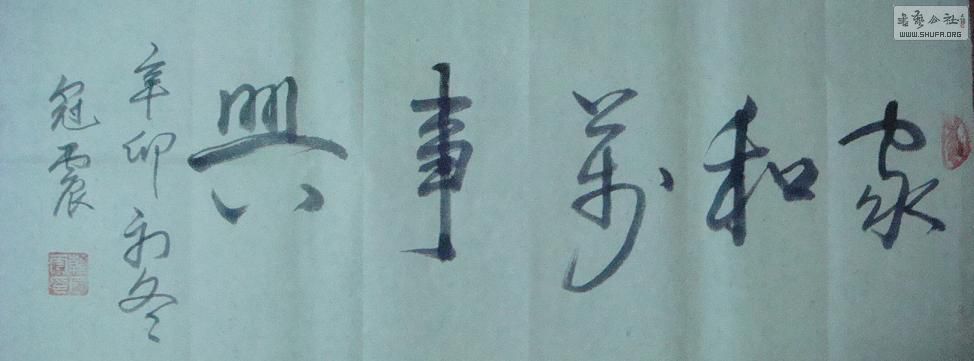 家和萬事興
辛卯初冬
冠震
書藝公社
WWW.SHUFA.ORG